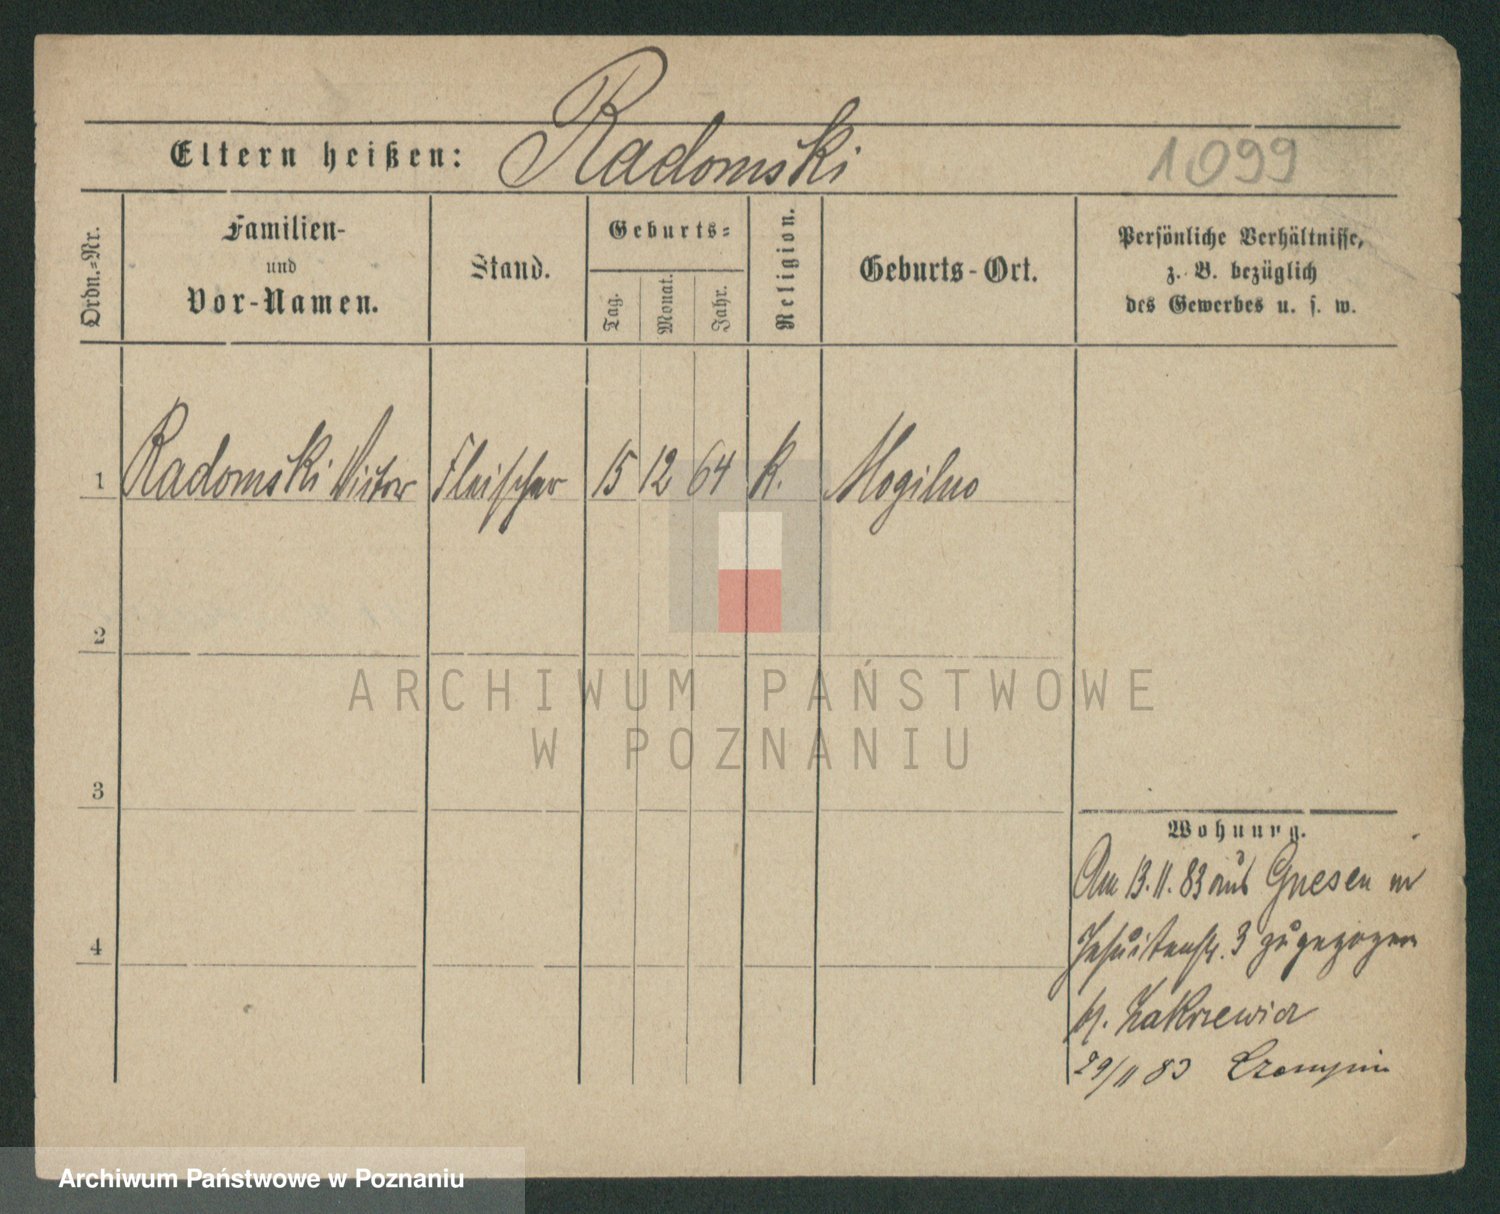 Eltern heißen: Radomski
1099
Ordn.=Nr.
Familien-
und
Vor-Namen.
Stand.
Geburts=
Tag.
Monat.
Jahr.
Religion.
Geburts-Ort.
Persönliche Verhältnisse,
z. B. bezüglich
des Gewerbes u. s. w.
1 Radomski Victor Fleischer 15 12 64 k. Mogilno
2
3
4
ARCHIWUM PAŃSTWOWE
W POZNANIU
Wohnung.
Am 13.11.83 aus Gnesen in
Jesuitenstr. 3 zugezogen
b. Zakrzewicz
29/11 83 Czempin
Archiwum Państwowe w Poznaniu